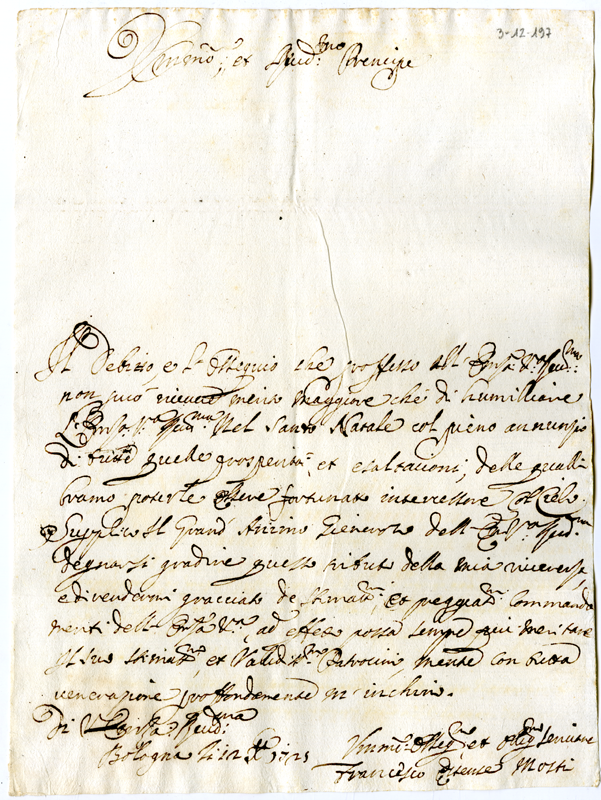 3-12-197
Em̃o: et Reud:mo Prencipe
Il Debito, e l'osseguio che proffesso all' Em.za V.ra Reud:ma
non può riceuere merito maggiore che di humilliare
a Em.za V.ra Reud.ma Nel Santo Natale col pieno annunzio
di tutte quelle prosperità, et esaltazioni; delle qualli
bramo poterle essere fortunato intercessore col Cielo.
Supplico il Grand' Animo Beneuolo dell' Em.za V.ra Reud.ma
degnarsi gradire questo tributo della mia riuerenza,
e di rendermi graziato de stimatmi, et preggiatmi Commanda
menti dell' Em.za V.ra, ad effetto possa sempre più meritare
il suo stimatmo, et Validmo Patrocinio, mentre con tutta
venerazione proffondamente m' inchino.
Di V. Em.za Reud:ma
Bologna li 1725
Humm:o et Oblig.mo Seruitore
Francesco Estense Mosti